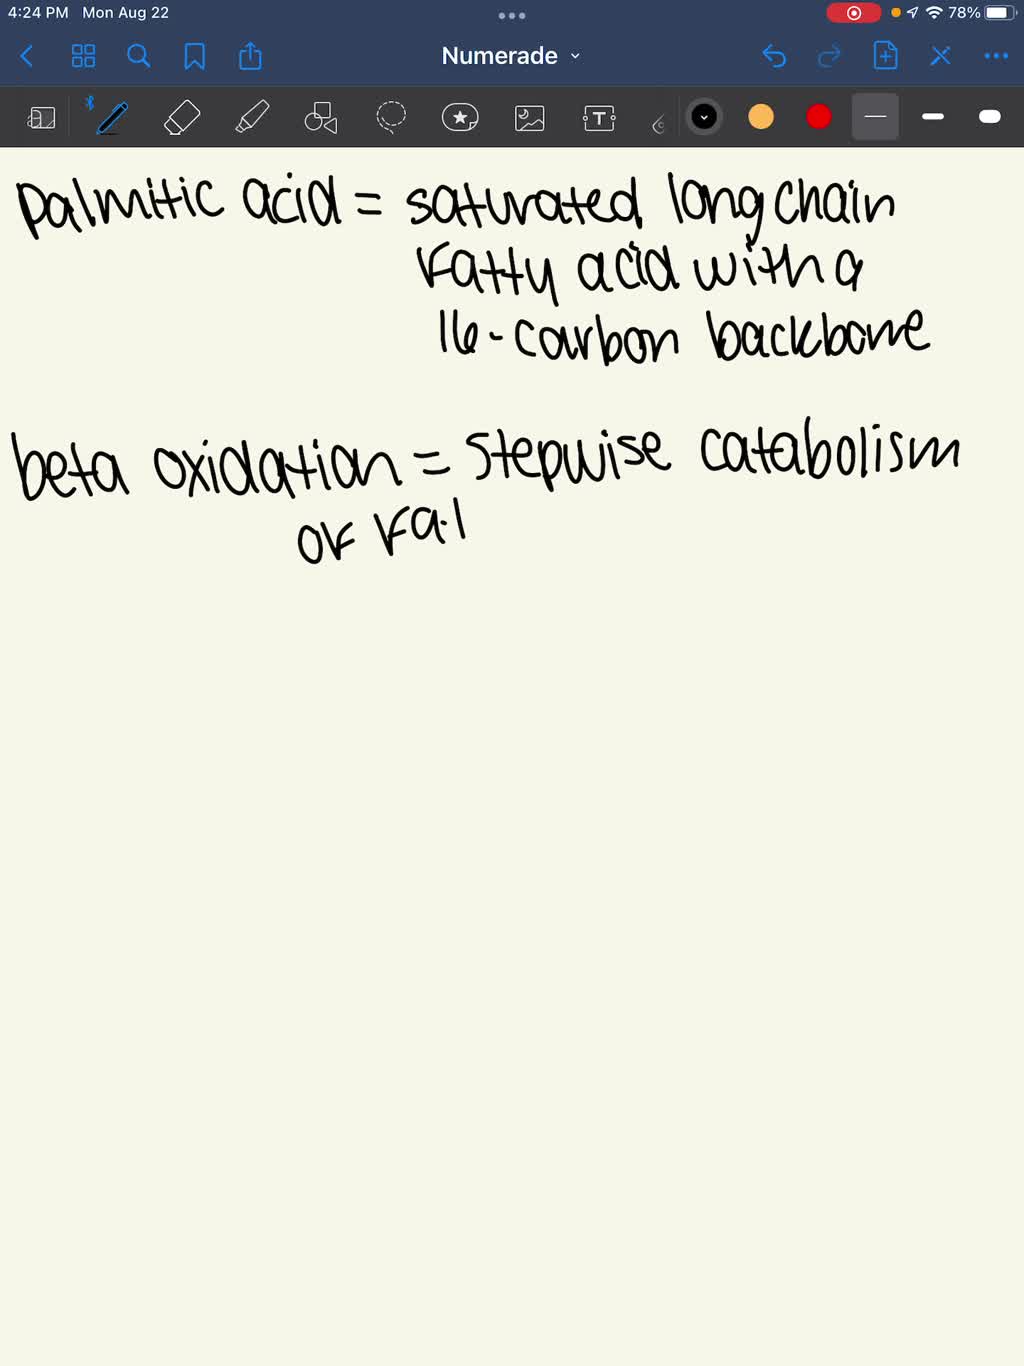 4:24 PM Mon Aug 22 78%
Numerade
T
palmitic acid = saturated long chain
fatty acid with a
16-carbon backbone
beta oxidation = stepwise catabolism
of